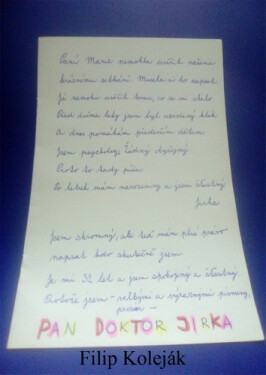 Paní Marie nemohla uvěřit našemu
krásnému setkání. Musela si to napsat
Já nemohu uvěřit tomu, co se mi stalo
Před dvěma lety jsem byl nesmělý kluk
A dnes pomáhám především dětem
Jsem psycholog, žádný obyčejný
Proto to tady píšu
Po letech mám narozeniny a jsem šťastný
Jirka
Jsem skromný, ale teď mám plné právo
napsat kdo skutečně jsem
Je mi 32 let a jsem spokojený a šťastný.
Protože jsem - velkými a výraznými písmeny,
prosím -
PAN DOKTOR JIRKA
Filip Koleják